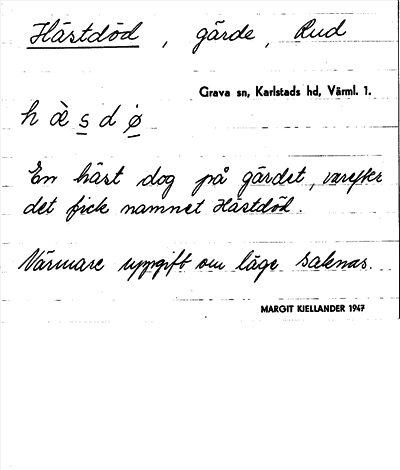 Hästdöd, gärde, Rud
Grava sn, Karlstads hd, Värml. 1.
h æ̀ s d ø
En häst dog på gärdet, varefter
det fick namnet Hästdöd.
Närmare uppgift om läge saknas.
MARGIT KJELLANDER 1947